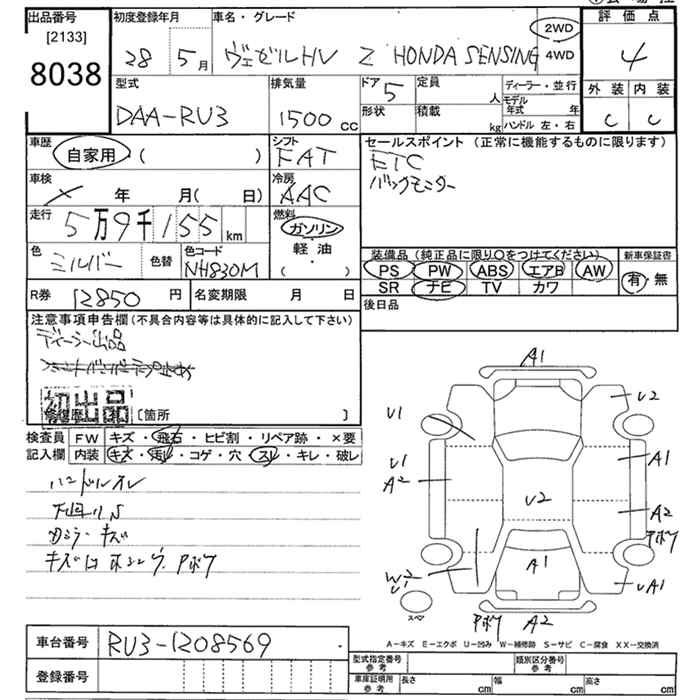 出品番号 初度登録年月 車名・グレード 評価点
[2133]
8038
28 5月 ヴェゼルHV Z HONDA SENSING 2WD 4WD 4
型式 排気量 ドア 定員 ディーラー・並行 外装 内装
DAA-RU3 1500cc 5 人 モデル年式 年 C C
形状 積載 kg ハンドル 左・右
車歴 自家用 ( ) シフト FAT セールスポイント (正常に機能するものに限ります)
ETC
バックモニター
車検 年 月( 日) 冷房 AAC
走行 5万9千155km 燃料 ガソリン 軽油 ( )
色 シルバー 色替 色コード NH830M
装備品 (純正品に限り〇をつけてください) 新車保証書
PS PW ABS エアB AW 有・無
SR ナビ TV カワ
R券 12850円 名変期限 月 日 後日品
注意事項申告欄 (不具合内容等は具体的に記入して下さい)
ディーラー出品
初出品
修復歴 [箇所 ]
検査員記入欄 FW キズ・飛石・ヒビ割・リペア跡・×要
内装 キズ・汚レ・コゲ・穴・スレ・キレ・破レ
ハンドルスレ
下回りS
カミラーキズ
A1
U2
U1
U1
A2
A1
U2
A2
Pボケ
A1
W2
U1
UA1
スペア
Pボケ A2
A-キズ E-エクボ U-凹み W-補修跡 S-サビ C-腐食 XX-交換済
車台番号 RU3-1208569
登録番号
型式指定番号 参考 類別区分番号 参考
車庫証明用 参考 長さ cm 幅 cm 高さ cm